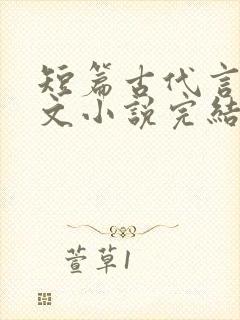 短篇古代言
文小説完結
萱草1